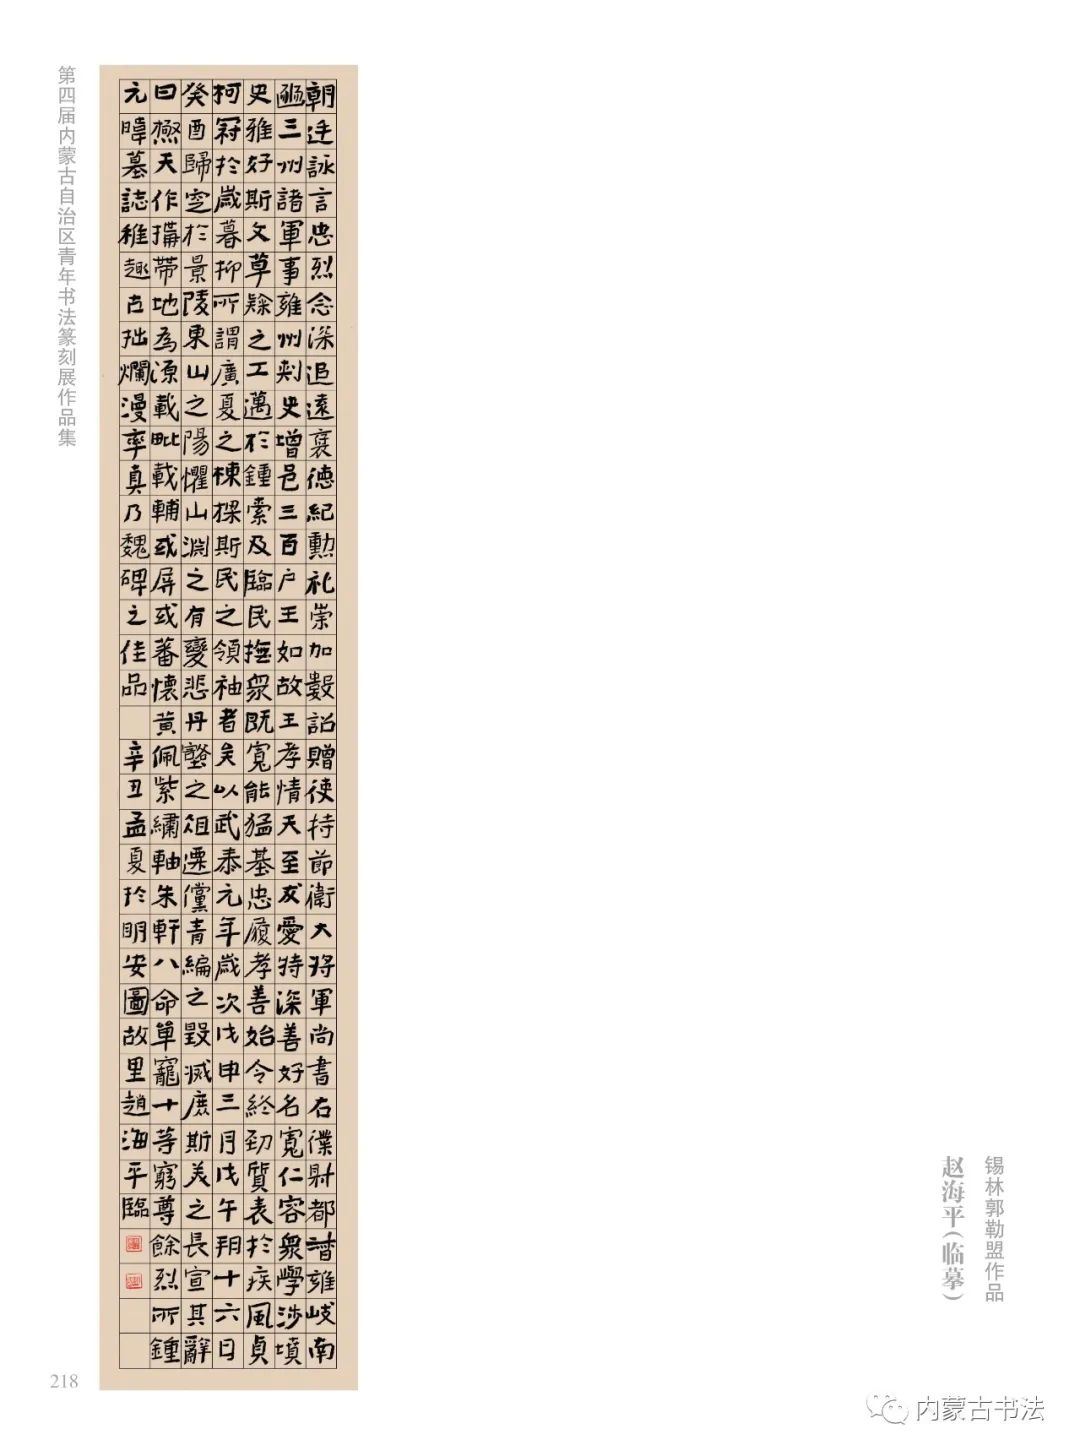 第四届内蒙古自治区青年书法篆刻展作品集
朝廷詠言忠烈念深追遠褒德紀勳礼崇加數詔贈使持節衛大將軍尚書右僕射都督雍岐南
豳三州諸軍事雍州刺史增邑三百户王如故王孝情天至友愛特深善好名寬仁容衆學涉墳
史雅好斯文草隸之工邁於鍾索及臨民撫衆既寬能猛基忠履孝善始令終勁質表於疾風貞
柯冠於歲暮抑所謂廣夏之棟樑斯民之領袖者矣以武泰元年歲次戊申三月戊午朔十六日
癸酉歸窆於景陵東山之陽懼山淵之有變悲丹壑之俎遷儻青編之毀滅庶斯美之長宣其辭
曰極天作構帶地為源載毗載輔或屏或蕃懷黃佩紫繡軸朱軒八命單寵十等窮尊餘烈所鍾
元暐墓誌稚趣古拙爛漫率真乃魏碑之佳品 辛丑孟夏於明安圖故里趙海平臨
锡林郭勒盟作品
赵海平（临摹）
218
内蒙古书法